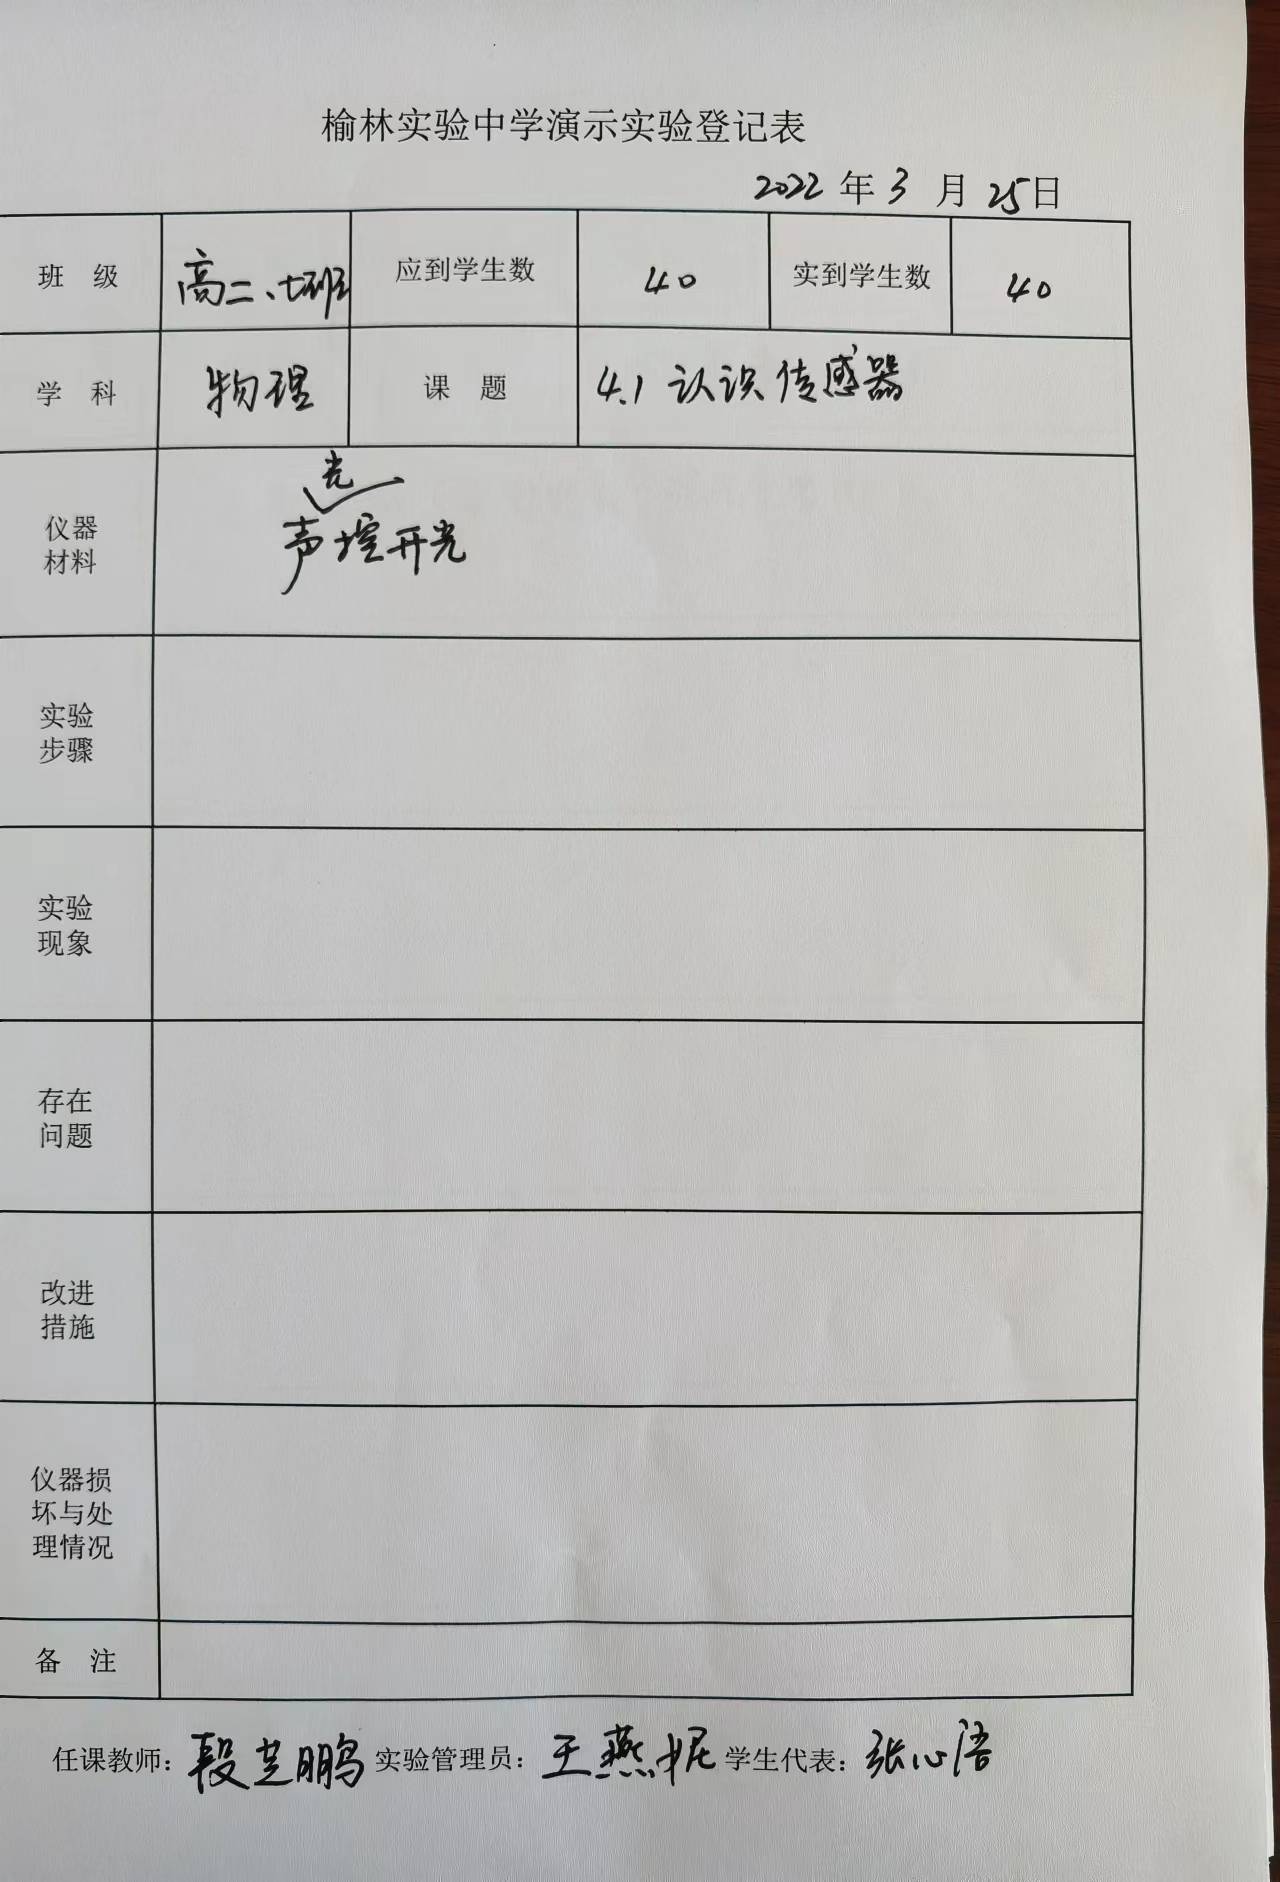 榆林实验中学演示实验登记表
2022 年 3 月 25日
班 级 高二、七班 应到学生数 40 实到学生数 40
学 科 物理 课 题 4.1 认识传感器
光
仪器 声控开光
材料
实验
步骤
实验
现象
存在
问题
改进
措施
仪器损
坏与处
理情况
备 注
任课教师：段芝鹏 实验管理员：王燕妮 学生代表：张心语